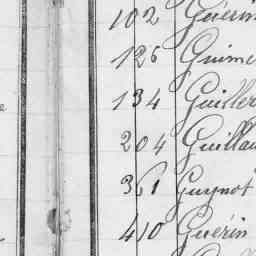 102 Guérin
126 Guime
134 Guiller
204 Guillau
361 Guynot
410 Guérin